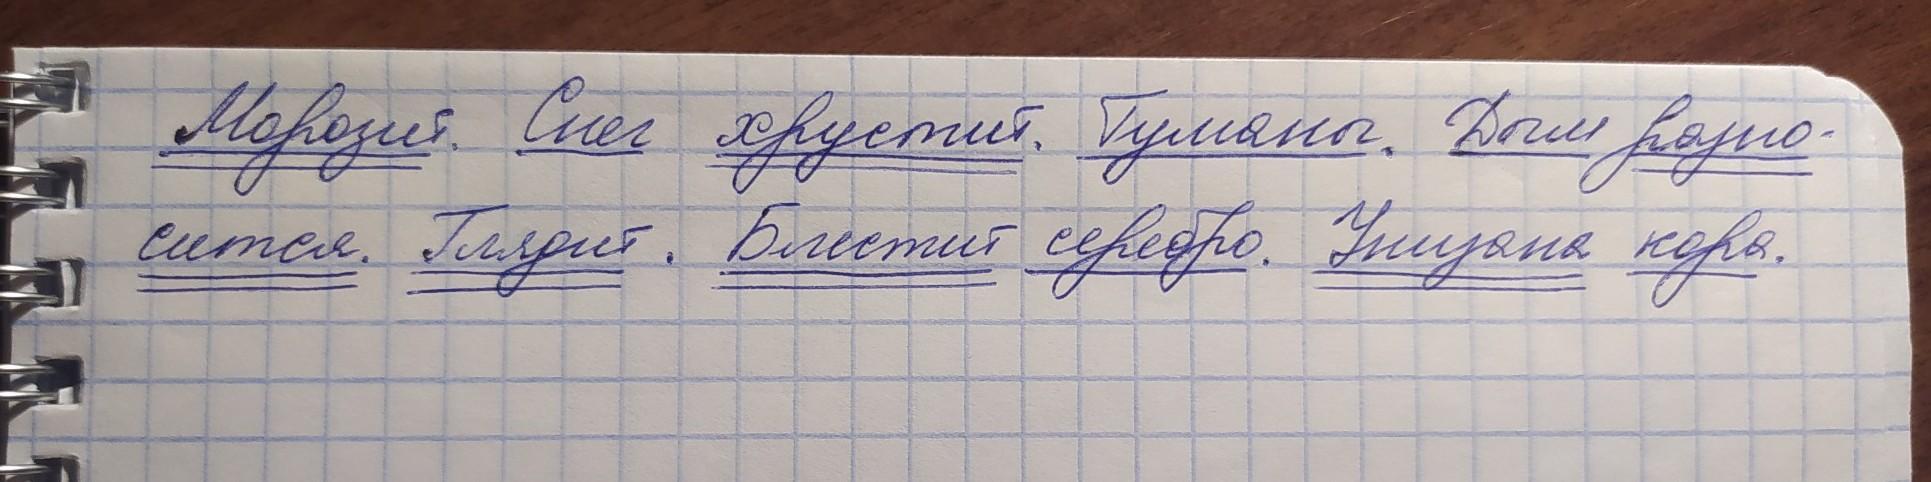 Морозит. Снег хрустит. Туманы. Дым разно-
сится. Глядит. Блестит серебро. Унизана кора.